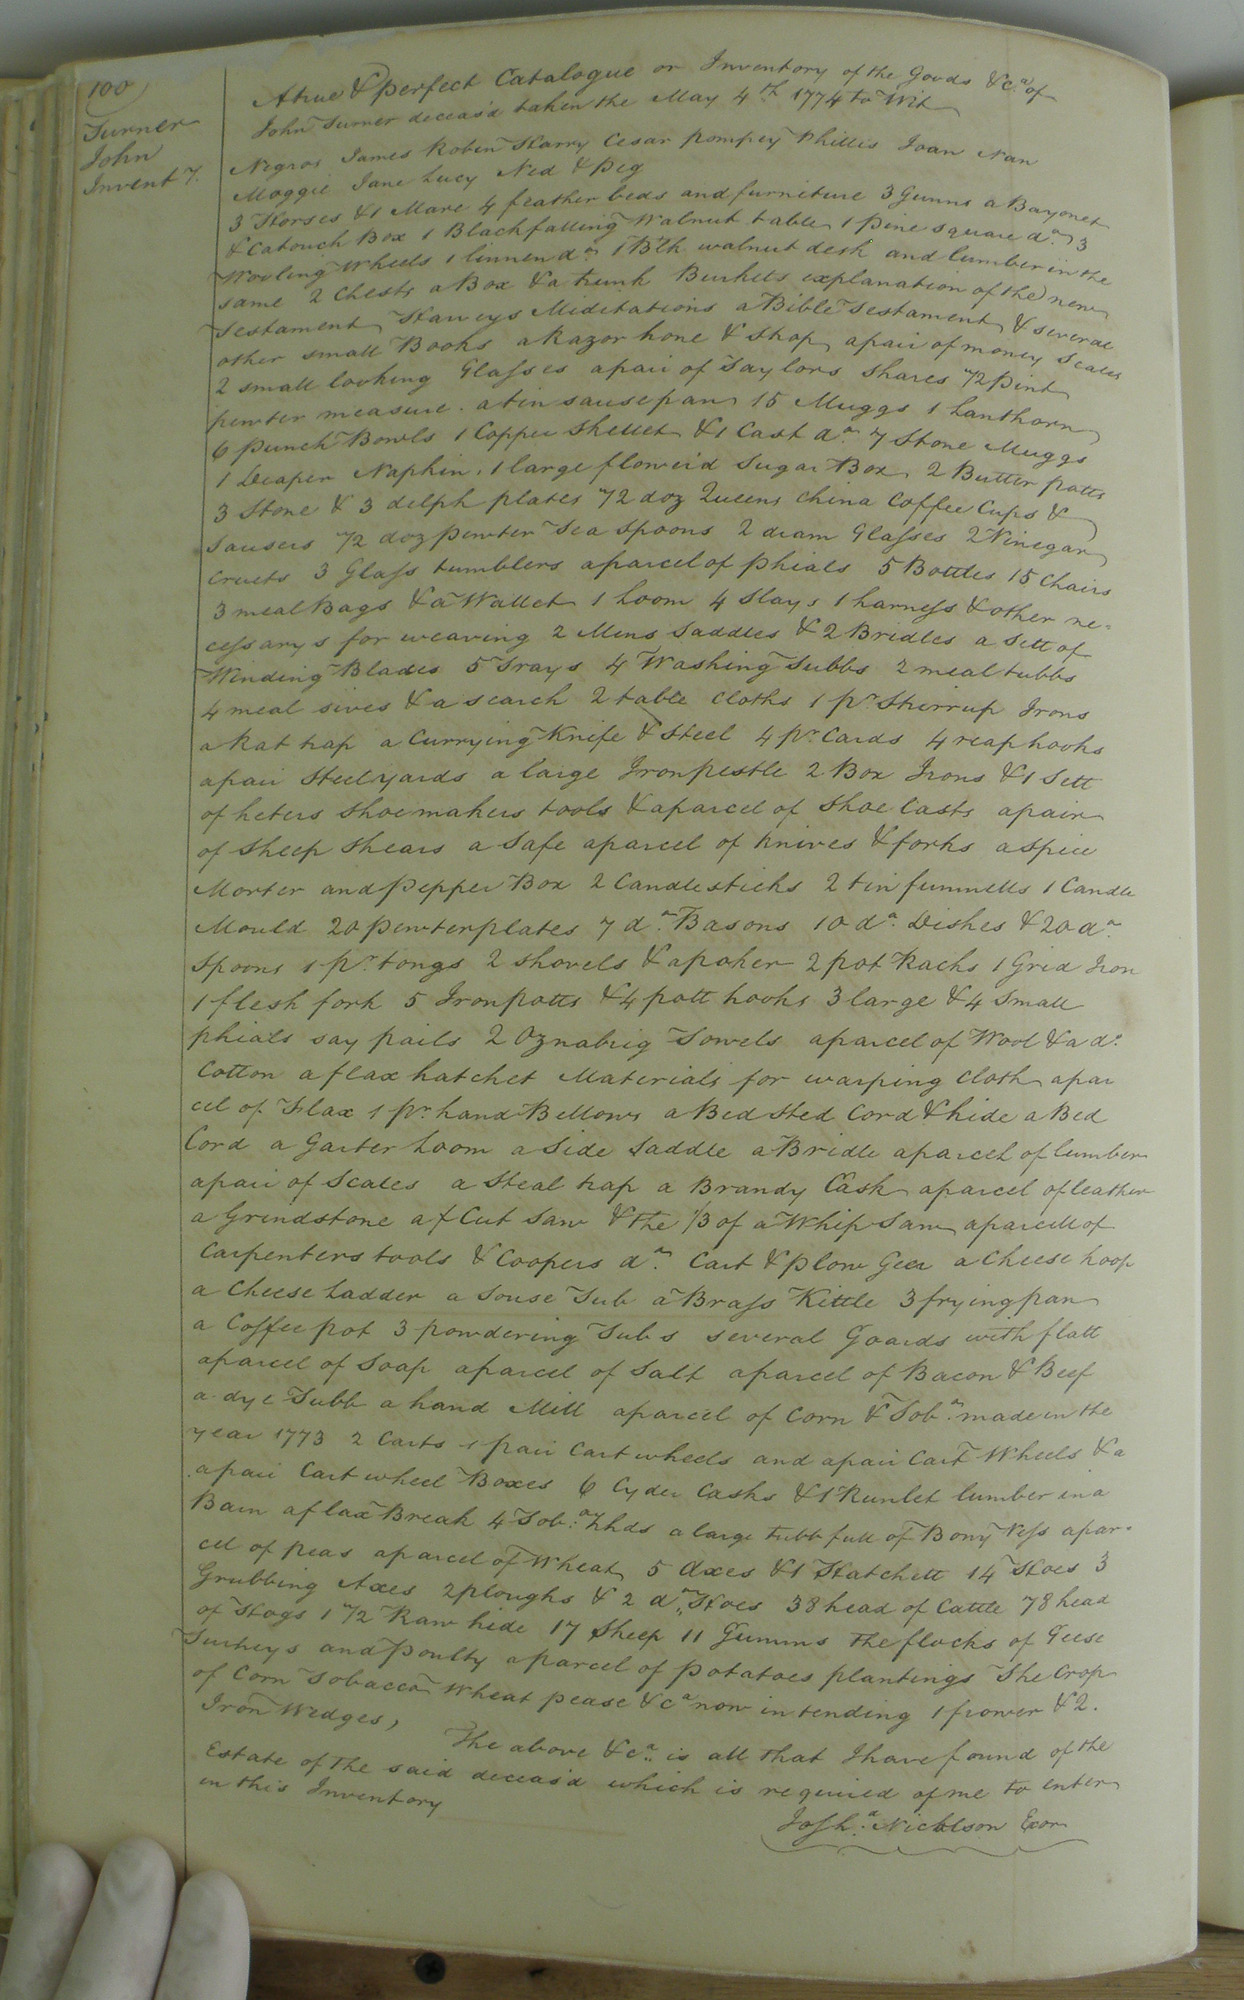 100
Turner
John
Invent y.
A true & perfect Catalogue or Inventory of the Goods &c.a of
John Turner deceas'd taken the May 4th 1774 to Wit
Negros James Robin Harry Cesar Pompey Phillis Joan Nan
Moggie Jane Lucy Ned & Peg
3 Horses & 1 Mare 4 feather beds and furniture 3 Gunns a Bayonet
& Catouch Box 1 Black falling Walnut table 1 pine square do. 3
Wooling Wheels 1 linnen do. 1 Blk walnut desk and lumber in the
same 2 Chests a Box & a trunk Burkets explanation of the new
Testament Harveys Miditations a Bible Testament & several
other small Books a Razor hone & Strop a pair of money Scales
2 small looking Glasses a pair of Taylors Shares 1/2 pint
pewter measure. a tin sausepan 15 Muggs 1 Lanthorn
6 Punch Bowls 1 Copper Skellet & 1 Cast do. 7 Stone Muggs
1 Deaper Napkin. 1 large flower'd Sugar Box 2 Butter potts
3 Stone & 3 delph plates 1/2 doz Queens China Coffee Cups &
Sausers 1/2 doz pewter Tea Spoons 2 dram Glasses 2 Vinegar
Cruets 3 Glass tumblers a parcel of phials 5 Bottles 15 Chairs
3 meal Bags & a Wallet 1 Loom 4 Slays 1 harness & other ne=
cessarys for weaving 2 Mens Saddles & 2 Bridles a Sett of
Winding Blades 5 Trays 4 Washing Tubbs 2 meal tubbs
4 meal sives & a search 2 table cloths 1 pr Stirrup Irons
a Rat trap a Currying Knife & Steel 4 pr. Cards 4 reaphooks
a pair Steelyards a large Iron pestle 2 Box Irons & 1 Sett
of heters Shoemakers tools & a parcel of Shoe Lasts a pair
of Sheep Shears a Safe a parcel of knives & forks a Spice
Morter and Pepper Box 2 Candlesticks 2 tin funnells 1 Candle
Mould 20 pewter plates 7 do. Basons 10 do. Dishes & 20 do.
Spoons 1 pr. tongs 2 Shovels & a poker 2 pot Racks 1 Grid Iron
1 flesh fork 5 Iron potts & 4 pott hooks 3 large & 4 Small
phials say pails 2 Oznabrig Towels a parcel of Wool & a do.
Cotton a flax hatchet Materials for warping Cloth a par
cel of Flax 1 pr. hand Bellows a Bed Sted Cord & hide a Bed
Cord a Garter Loom a Side Saddle a Bridle a parcel of lumber
a pair of Scales a Steal trap a Brandy Cask a parcel of leather
a Grindstone a f Cut Saw & the 1/3 of a Whip Saw a parcell of
Carpenters tools & Coopers do. Cart & Plow Geer a Cheese hoop
a Cheese Ladder a Souse Tub a Brass Kittle 3 frying pan
a Coffee pot 3 powdering Tubs several Goards with flatt
a parcel of Soap a parcel of Salt a parcel of Bacon & Beef
a dye Tubb a hand Mill a parcel of Corn & Tob.o made in the
year 1773 2 Carts 1 pair Cart wheels and a pair Cart Wheels & a
a pair Cart wheel Boxes 6 Cyder Casks & 1 Runlet lumber in a
Barn a flax Break 4 Tob.o hhds a large tubb full of Bony Ness a par=
cel of peas a parcel of Wheat 5 Axes & 1 Hatchett 14 Hoes 3
Grubbing Axes 2 ploughs & 2 do. Hoes 38 head of Cattle 78 head
of Hogs 1 1/2 Raw hide 17 Sheep 11 Gumms The flocks of Geese
Turkeys and Poulty a parcel of potatoes plantings The Crop
of Corn Tobacco Wheat pease &c.a now in tending 1 frower & 2.
Iron Wedges,
The above &c.a is all that I have found of the
Estate of the said deceas'd which is required of me to enter
in this Inventory
Josh.a Nicklson Exor